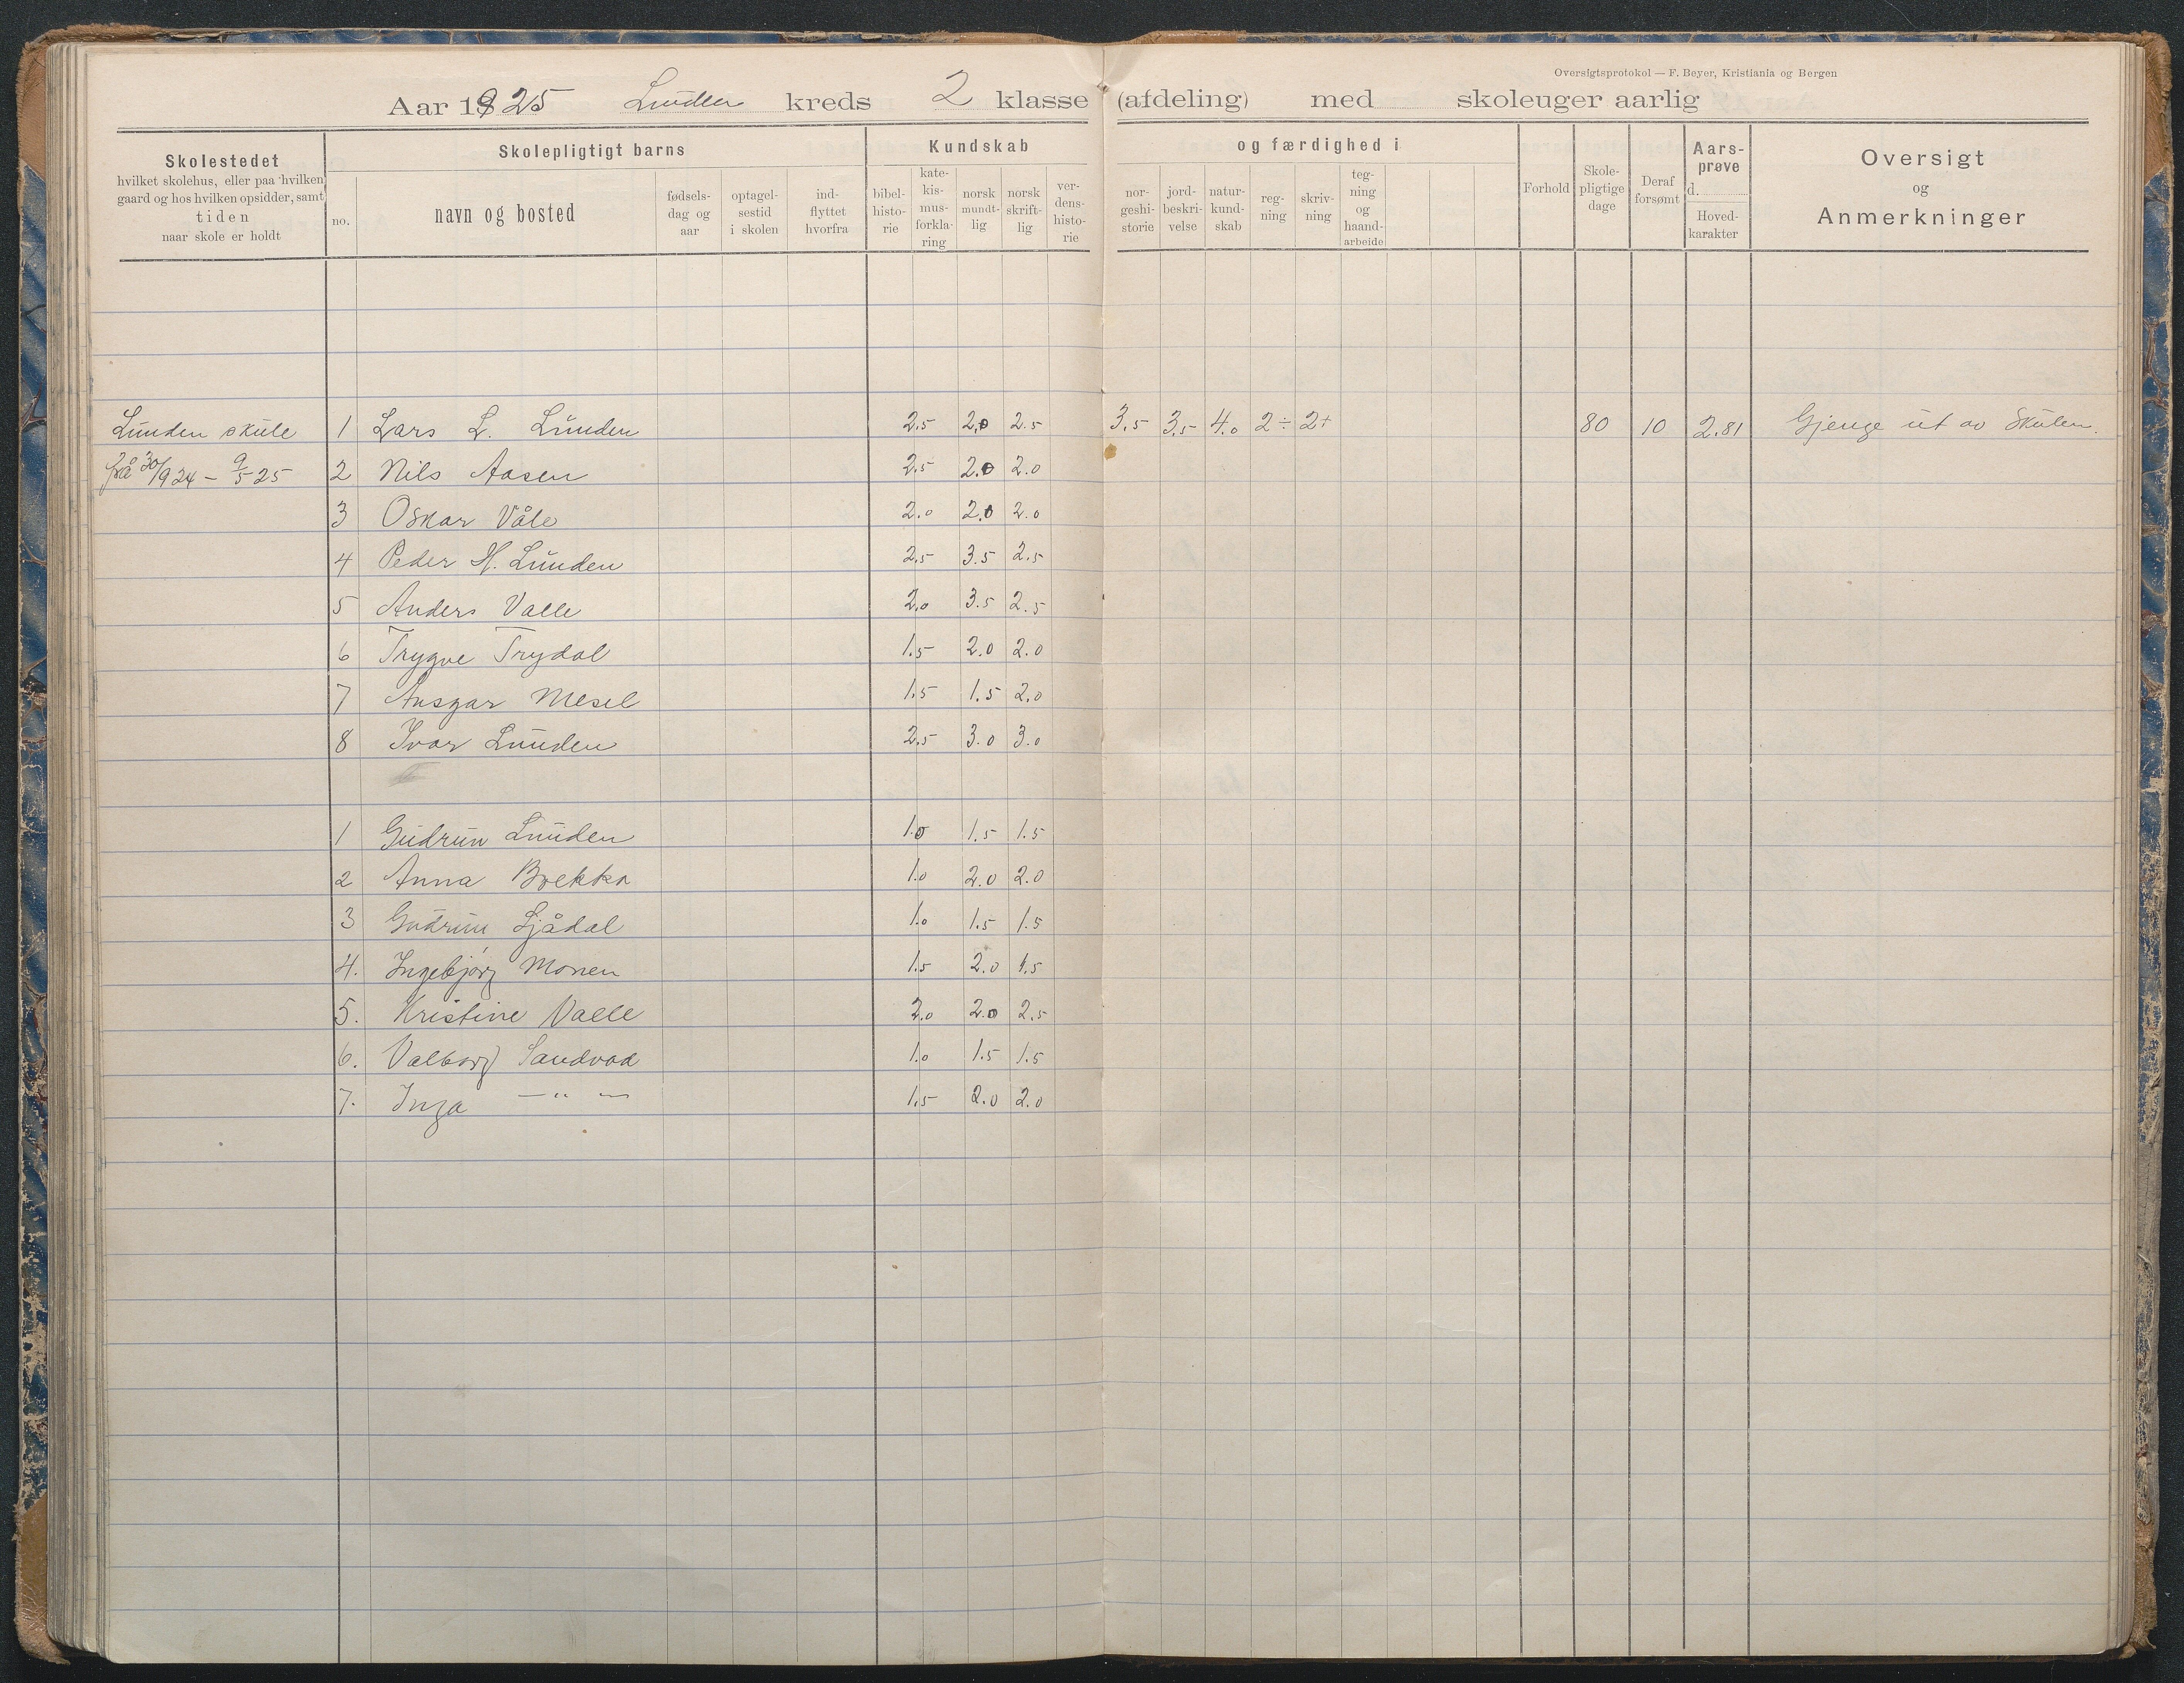 Oversigtsprotokol — F. Beyer, Kristiania og Bergen
Aar 1925 Lunden kreds 2 klasse (afdeling) med skoleuger aarlig
Skolestedet
hvilket skolehus, eller paa hvilken
gaard og hos hvilken opsidder, samt
tiden
naar skole er holdt
Skolepligtigt barns
no.
navn og bosted
fødsels-
dag og
aar
optagel-
sestid
i skolen
ind-
flyttet
hvorfra
Kundskab
bibel-
histo-
rie
kate-
kis-
mus-
forkla-
ring
norsk
mundt-
lig
norsk
skrift-
lig
ver-
dens-
histo-
rie
og færdighed i
nor-
geshi-
storie
jord-
beskri-
velse
natur-
kund-
skab
reg-
ning
skriv-
ning
teg-
ning
og
haand-
arbeide
Forhold
Skole-
pligtige
dage
Deraf
forsømt
Aars-
prøve
d.
Hoved-
karakter
Oversigt
og
Anmerkninger
Lunden skule 1 Lars L. Lunden 2.5 2.0 2.5 3.5 3.5 4.0 2÷ 2+ 80 10 2.81 Gjenge ut av Skulen.
frå 30/9 24 – 9/5 25 2 Nils Aasen 2.5 2.0 2.0
3 Oskar Våle 2.0 2.0 2.0
4 Peder H. Lunden 2.5 3.5 2.5
5 Anders Valle 2.0 3.5 2.5
6 Trygve Trydal 1.5 2.0 2.0
7 Ansgar Mesel 1.5 1.5 2.0
8 Ivar Lunden 2.5 3.0 3.0
1 Gudrun Lunden 1.0 1.5 1.5
2 Anna Brekka 1.0 2.0 2.0
3 Gudrun Ljådal 1.0 1.5 1.5
4. Ingebjørg Monen 1.5 2.0 1.5
5. Kristine Valle 2.0 2.0 2.5
6. Valborg Sandvad 1.0 1.5 1.5
7. Inga — " — 1.5 2.0 2.0